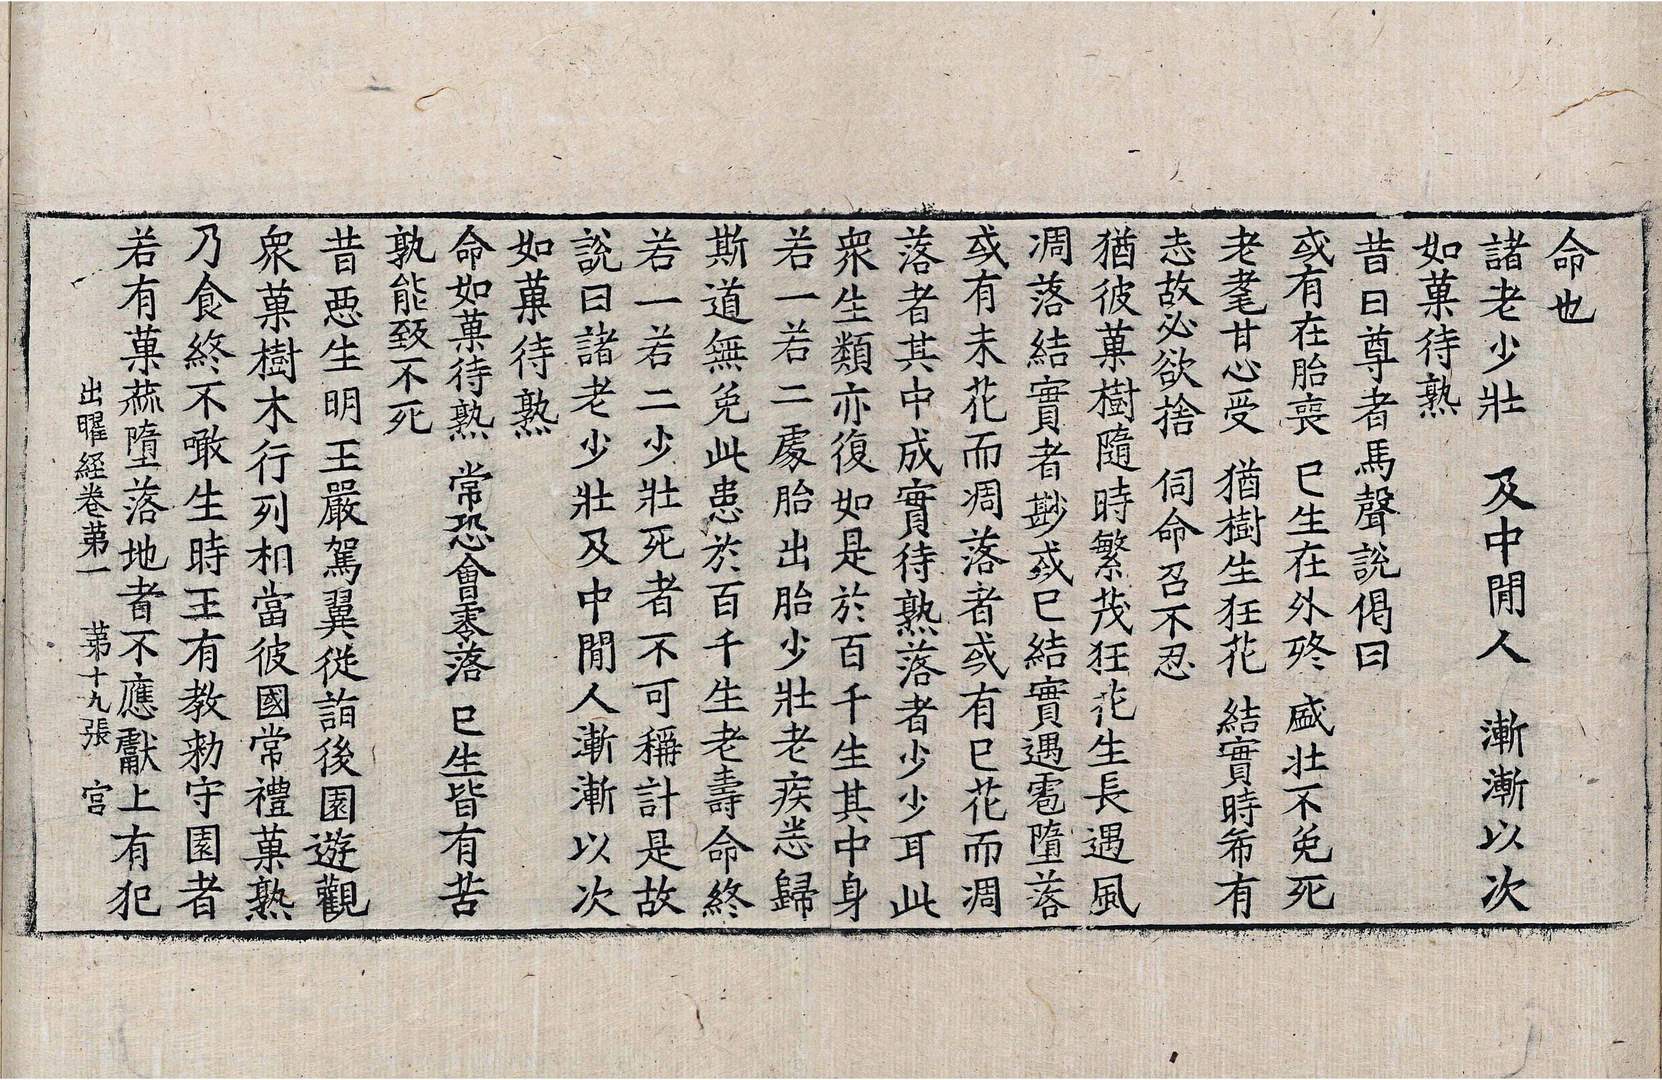 命也
諸老少壯　及中閒人　漸漸以次
如菓待熟
昔日尊者馬聲說偈曰
或有在胎喪　已生在外終　盛壯不免死
老耄甘心受　猶樹生狂花　結實時希有
志故必欲捨　伺命召不忍
猶彼菓樹隨時繁茂狂花生長遇風
凋落結實者尠或已結實遇雹墮落
或有未花而凋落者或有已花而凋
落者其中成實待熟落者少少耳此
衆生類亦復如是於百千生其中身
若一若二處胎出胎少壯老疾悉歸
斯道無免此患於百千生老壽命終
若一若二少壯死者不可稱計是故
說曰諸老少壯及中閒人漸漸以次
如菓待熟
命如菓待熟　常恐會零落　已生皆有苦
孰能致不死
昔惡生明王嚴駕翼從詣後園遊觀
衆菓樹木行列相當彼國常禮菓熟
乃食終不噉生時王有教勑守園者
若有菓蓏墮落地者不應獻上有犯
出曜經卷苐一　苐十九張　宮